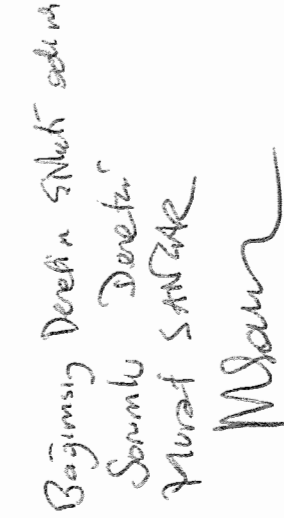 Bağımsız Denetim Şirketi adına
Sorumlu Denetçi
Murat SANCAR